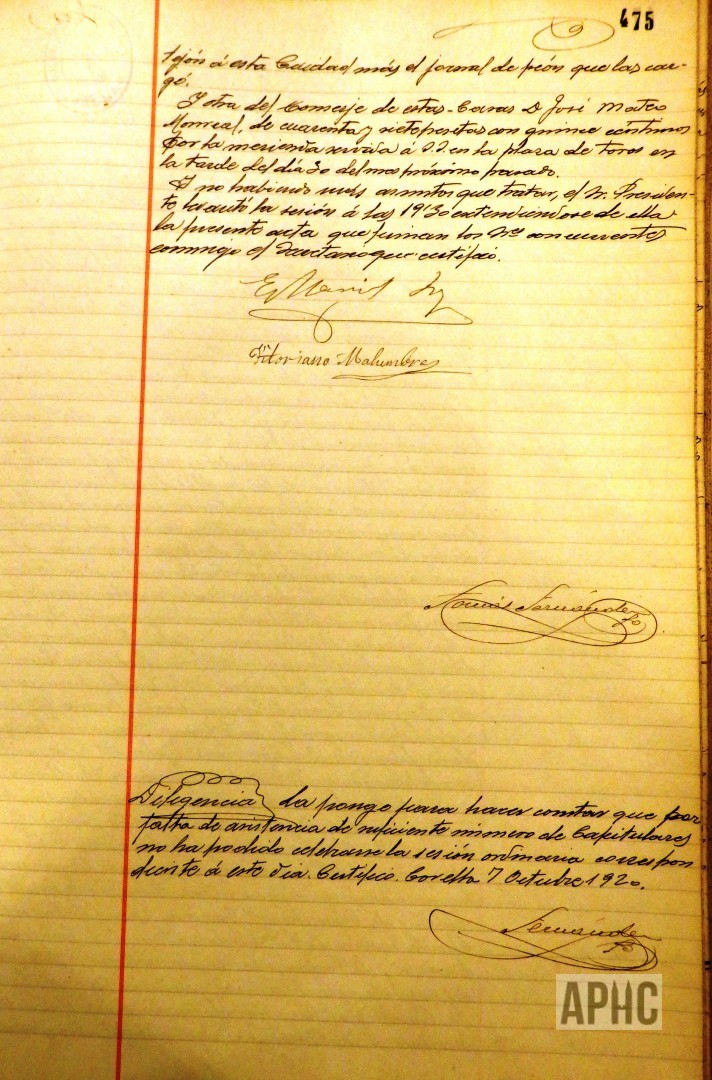 475
tejón á esta Ciudad más el jornal de peón que las car-
gó.
Y otra del Conserje de estas Casas D. José Mateo
Monreal, de cuarenta y siete pesetas con quince céntimos
por la merienda servida á SS. en la plaza de toros en
la tarde del día 30 del mes próximo pasado.
Y no habiendo más asuntos que tratar, el Sr. Presiden-
te levantó la sesión á las 19'30 extendiendose de ella
la presente acta que firman los Sres concurrentes
conmigo el Secretario que certifico.
Vitoriano Malumbres
Tomás Fernández
Diligencia La pongo para hacer constar que por
falta de asistencia de suficiente número de Capitulares
no ha podido celebrarse la sesión ordinaria correspon
diente á este día. Certifico. Corella 7 Octubre 1920.
Fernández
APHC